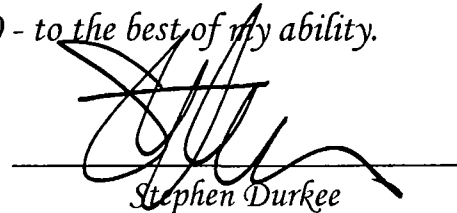 - to the best of my ability.
Stephen Durkee